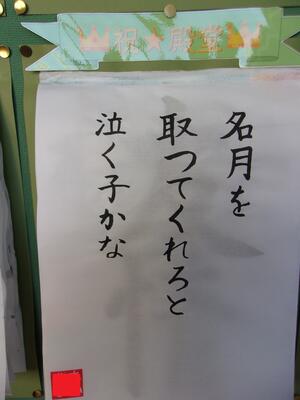 祝★殿堂
名月を
取つてくれろと
泣く子かな